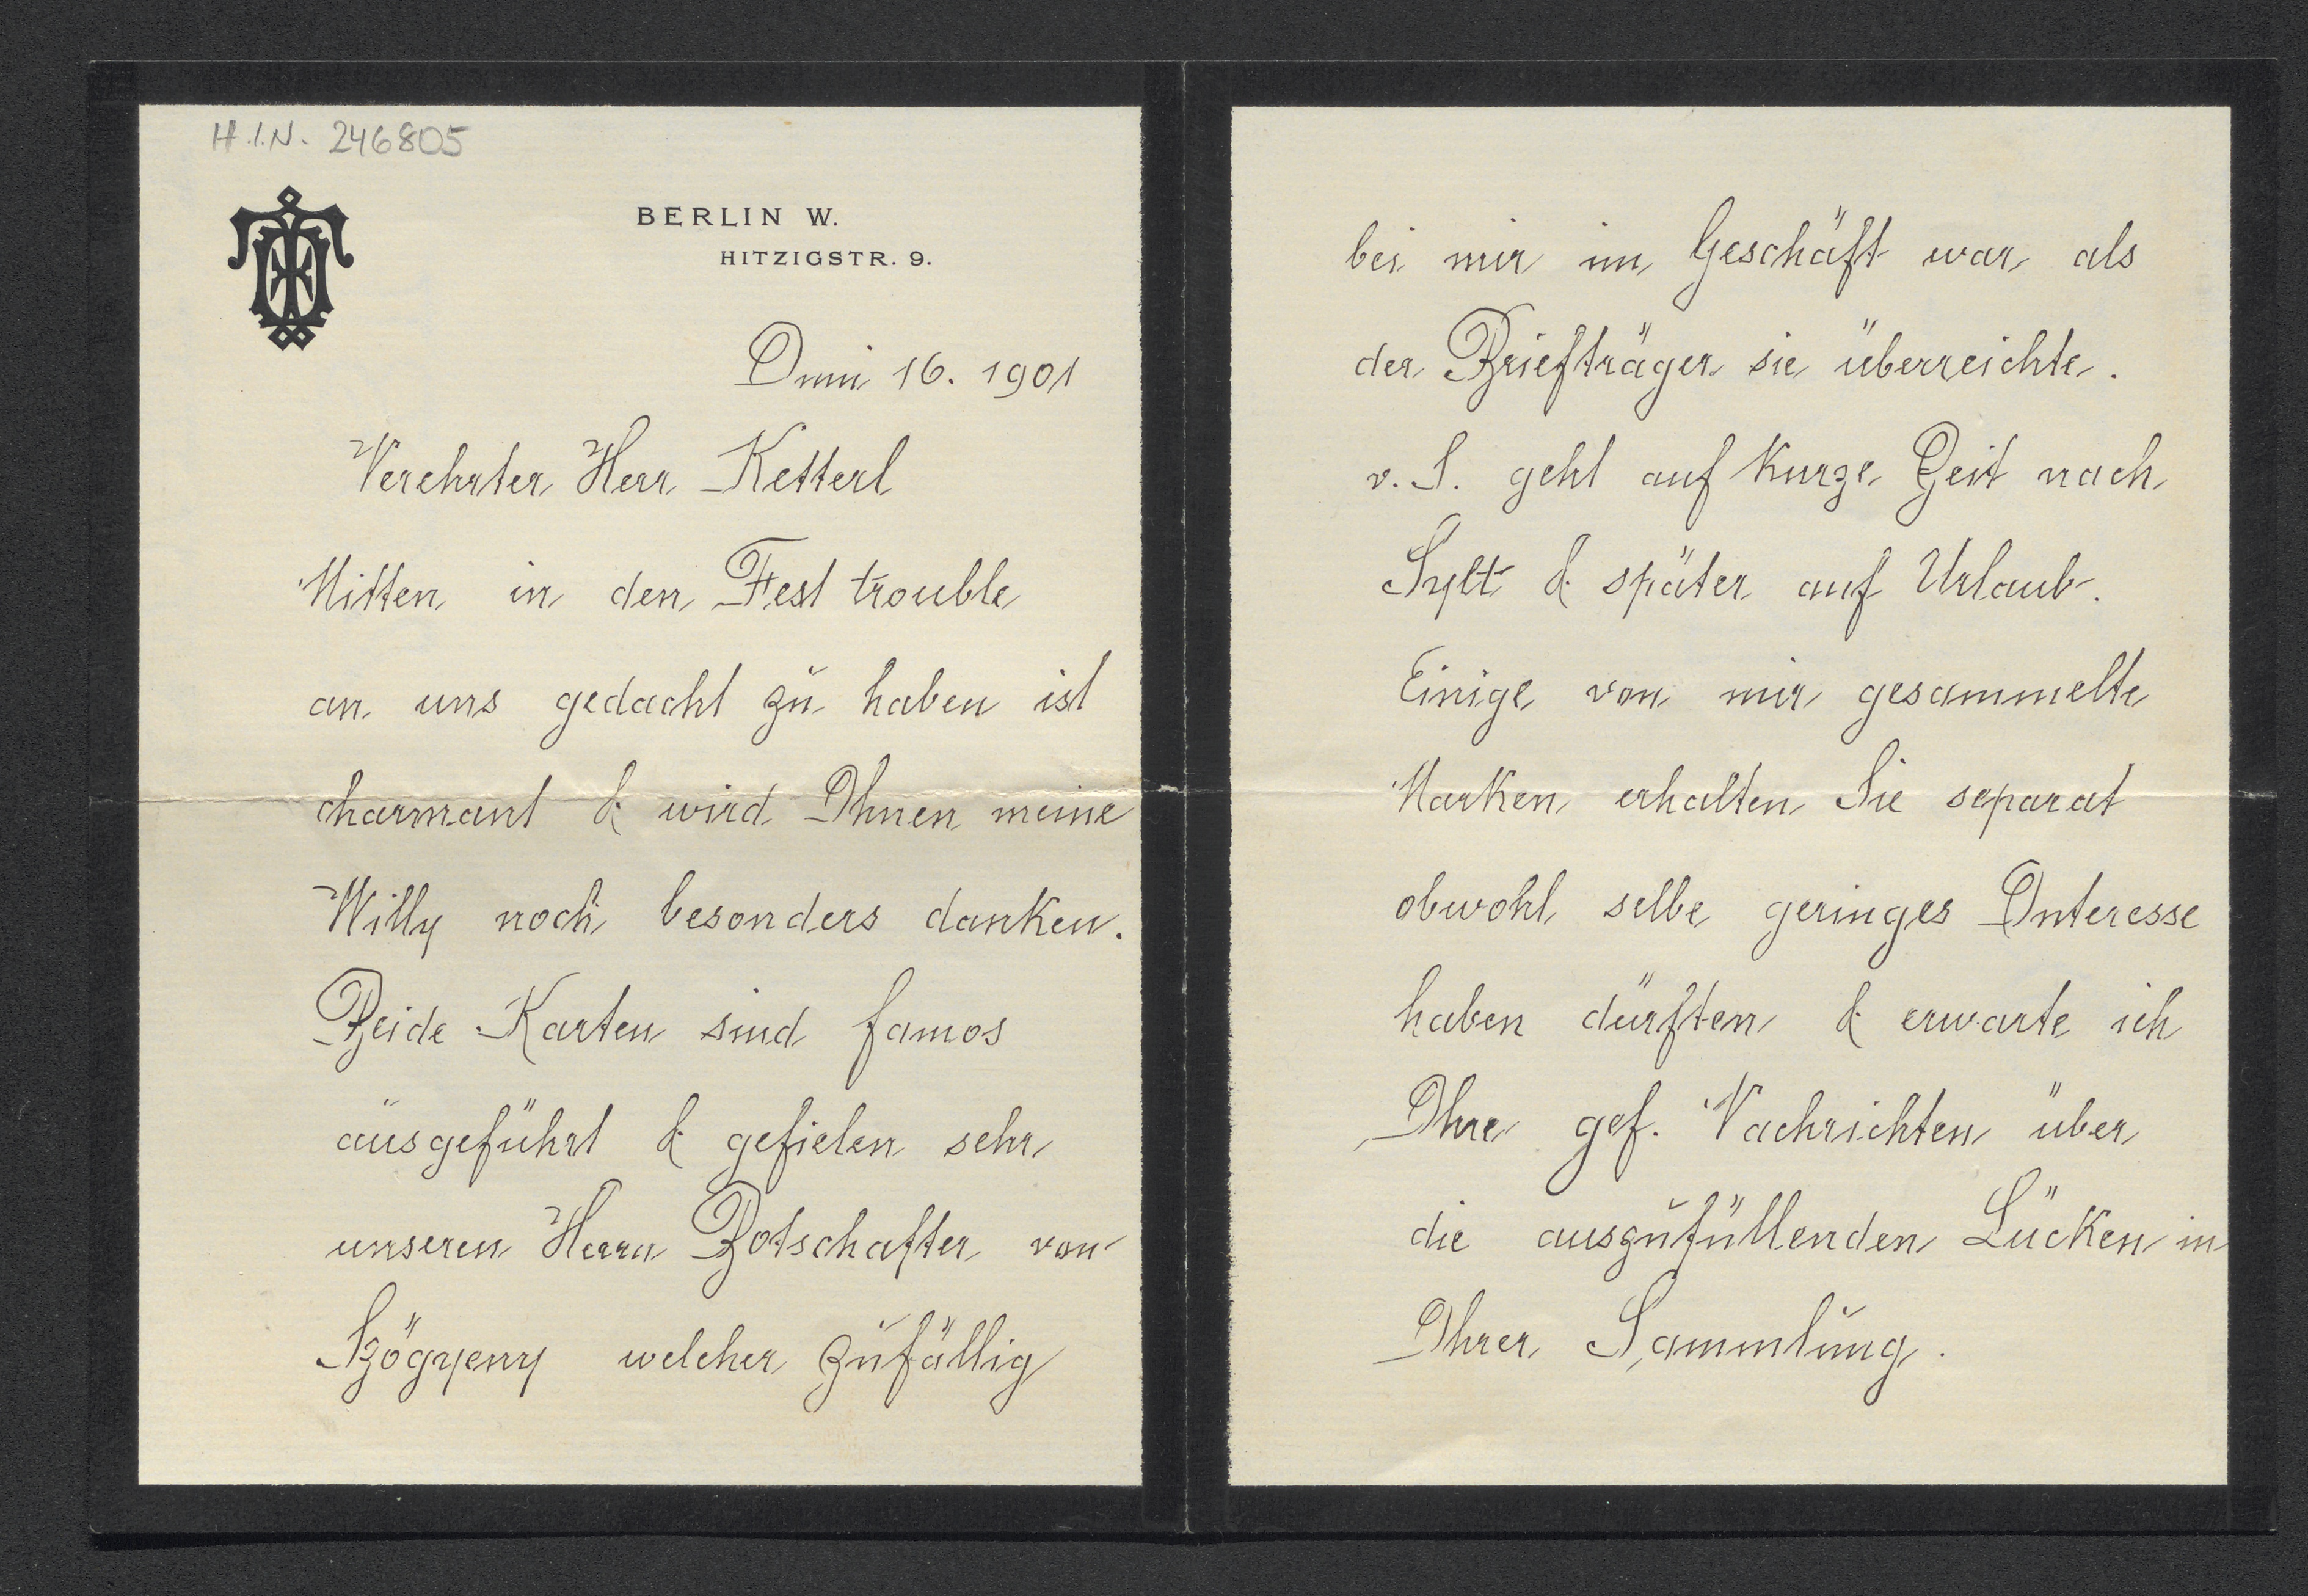 H.I.N. 246805
BERLIN W.
HITZIGSTR. 9.
Juni 16. 1901
Verehrter Herr Ketterl
Mitten in den Fest trouble
an uns gedacht zu haben ist
charmant & wird Ihnen meine
Willy noch besonders danken.
Beide Karten sind famos
ausgeführt & gefielen sehr
unseren Herrn Botschafter von
Szögyeny welcher zufällig
bei mir im Geschäft war als
der Briefträger sie überreichte.
v. S. geht auf kurze Zeit nach
Sylt & später auf Urlaub.
Einige von mir gesammelte
Marken erhalten Sie separat
obwohl selbe geringes Interesse
haben dürften & erwarte ich
Ihre gef. Nachrichten über
die auszufüllenden Lücken in
Ihrer Sammlung.